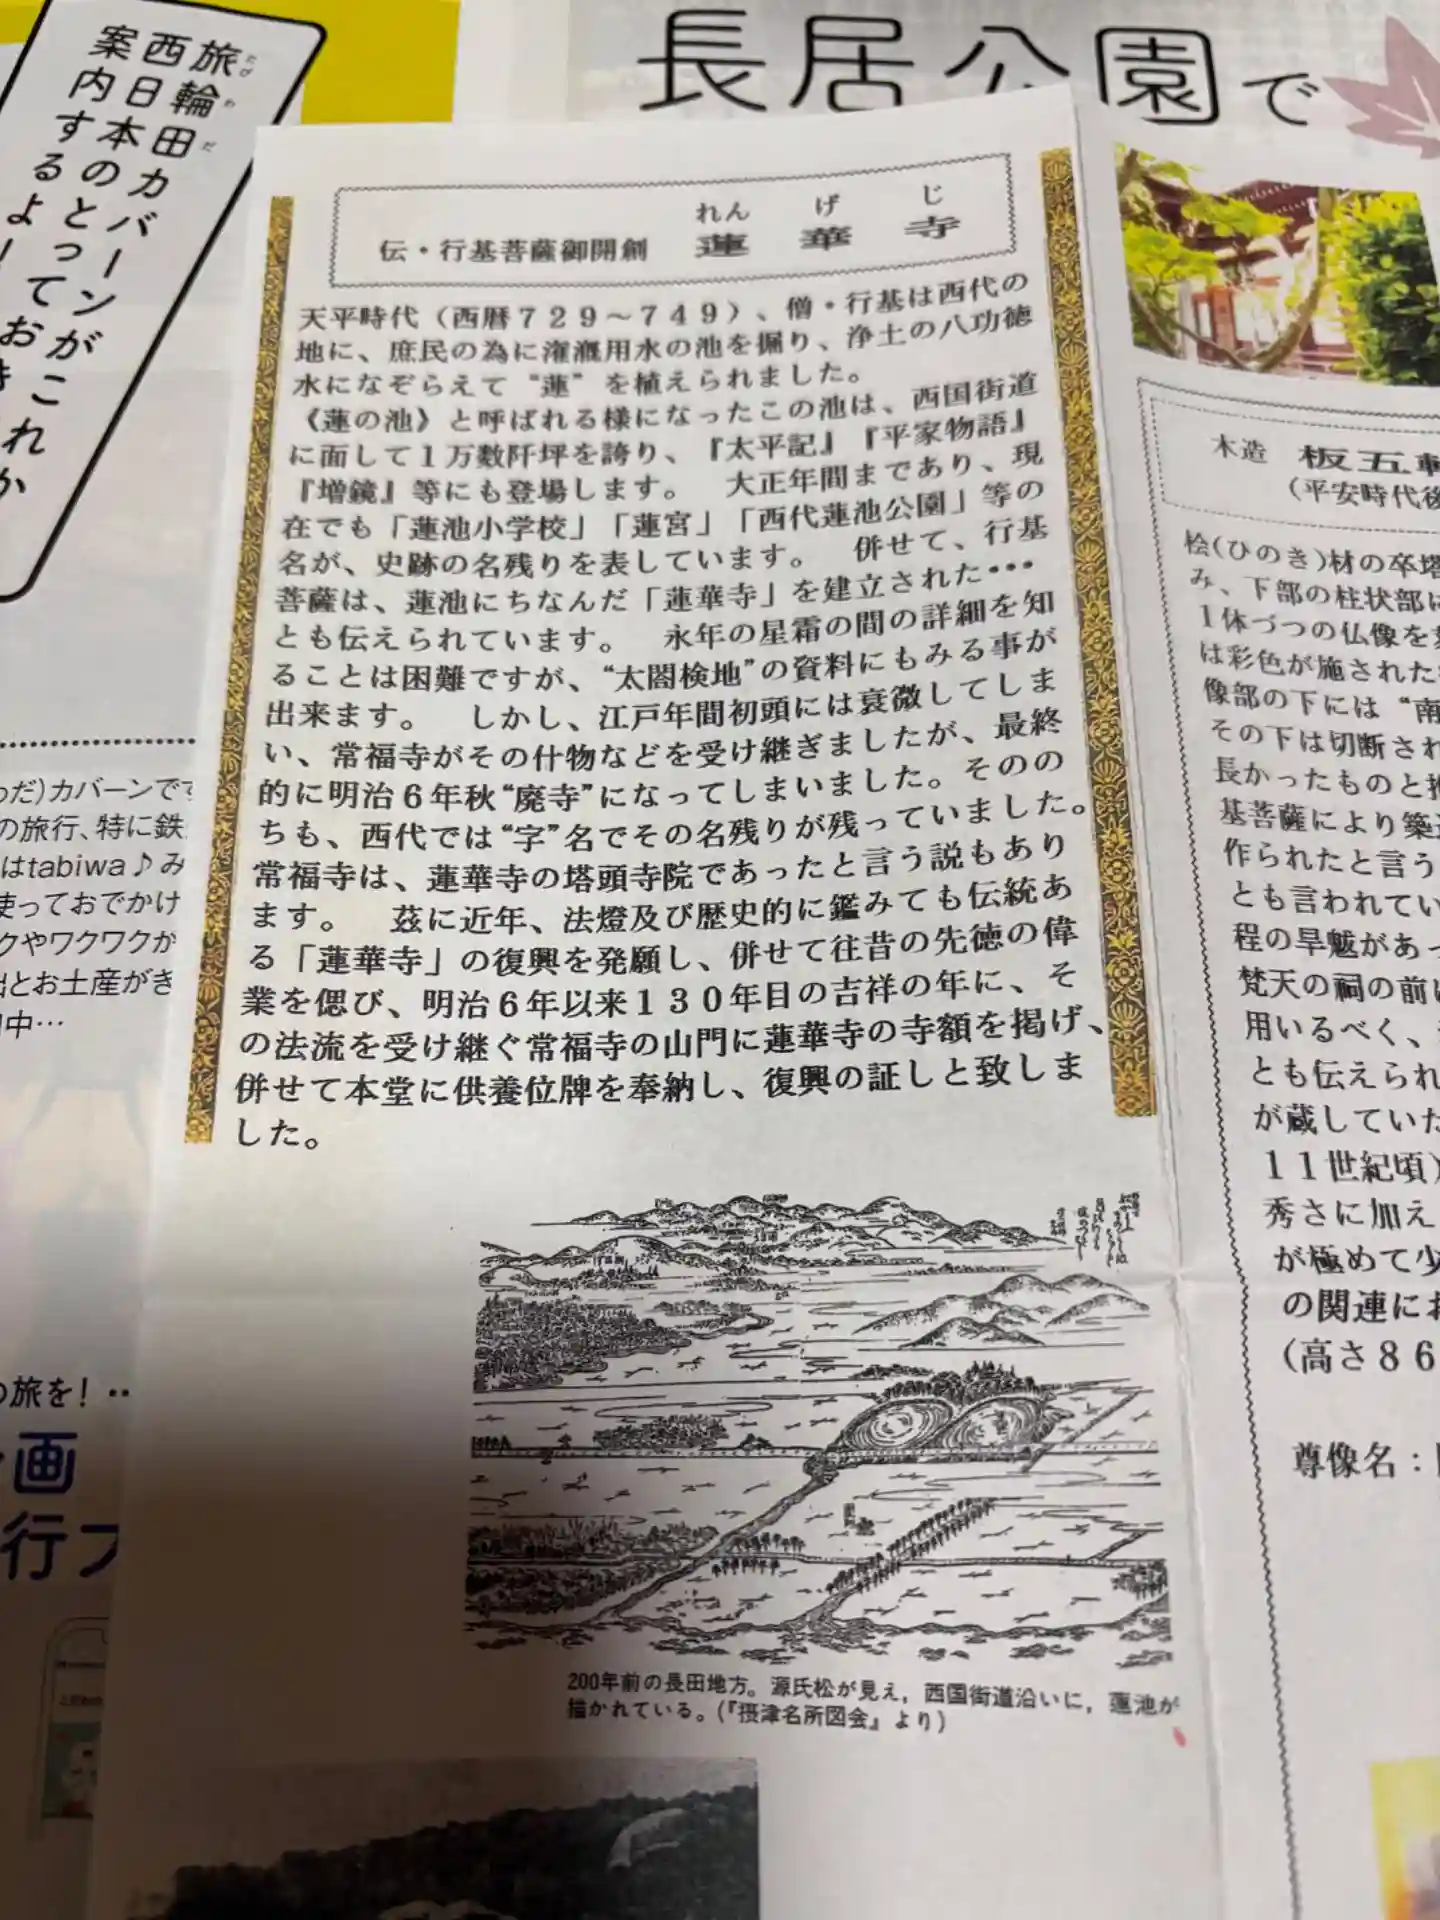 旅輪田カバーンがこれか
西日本のとっておき
案内するよ!
たびわだ
長居公園で
れんげじ
伝・行基菩薩御開創 蓮華寺
天平時代（西暦729～749）、僧・行基は西代の
地に、庶民の為に潅漑用水の池を掘り、浄土の八功徳
水になぞらえて“蓮”を植えられました。
《蓮の池》と呼ばれる様になったこの池は、西国街道
に面して1万数阡坪を誇り、『太平記』『平家物語』
『増鏡』等にも登場します。 大正年間まであり、現
在でも「蓮池小学校」「蓮宮」「西代蓮池公園」等の
名が、史跡の名残りを表しています。 併せて、行基
菩薩は、蓮池にちなんだ「蓮華寺」を建立された・・・
とも伝えられています。 永年の星霜の間の詳細を知
ることは困難ですが、“太閤検地”の資料にもみる事が
出来ます。 しかし、江戸年間初頭には衰微してしま
い、常福寺がその什物などを受け継ぎましたが、最終
的に明治6年秋“廃寺”になってしまいました。そのの
ちも、西代では“字”名でその名残りが残っていました。
常福寺は、蓮華寺の塔頭寺院であったと言う説もあり
ます。 茲に近年、法燈及び歴史的に鑑みても伝統あ
る「蓮華寺」の復興を発願し、併せて往昔の先徳の偉
業を偲び、明治6年以来130年目の吉祥の年に、そ
の法流を受け継ぐ常福寺の山門に蓮華寺の寺額を掲げ、
併せて本堂に供養位牌を奉納し、復興の証しと致しま
した。
200年前の長田地方。源氏松が見え，西国街道沿いに，蓮池が
描かれている。(『摂津名所図会』より)
木造 板五輪
（平安時代後
桧(ひのき)材の卒塔
み、下部の柱状部に
1体づつの仏像を
は彩色が施された
像部の下には“南
その下は切断され
長かったものと推
基菩薩により築造
作られたと言う
とも言われてい
程の旱魃があっ
梵天の祠の前に
用いるべく、
とも伝えられ
が蔵していた
11世紀頃)
秀さに加え
が極めて少
の関連にお
(高さ86
尊像名：
わだ)カバーンです
の旅行、特に鉄
はtabiwa♪み
使っておでかけ
クやワクワクが
出とお土産がき
中…
の旅を!
画
行プ